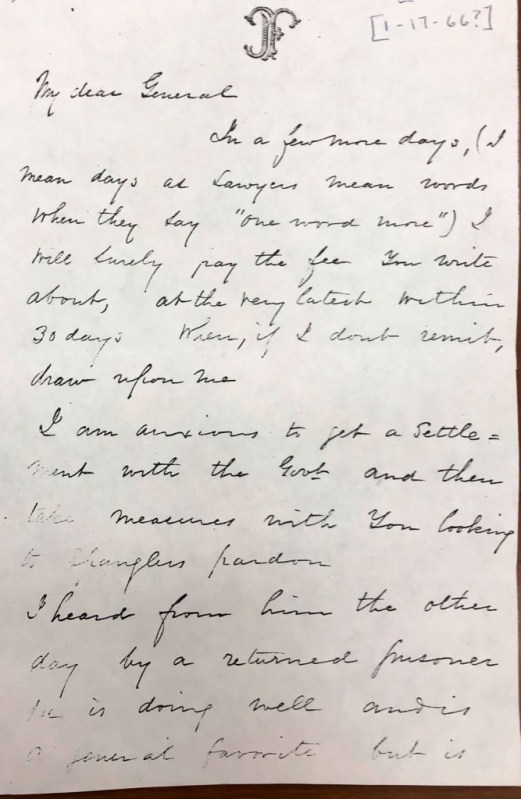 JF
[1-17-66?]
My dear General
In a few more days, (I
mean days as Lawyers mean words
when they say "one word more") I
will surely pay the fee You write
about, at the very latest within
30 days When, if I dont remit,
draw upon me
I am anxious to get a Settle=
ment with the Govt and then
take measures with You looking
to Spanglers pardon
I heard from him the other
day by a returned prisoner
He is doing well and is
a general favorite but is